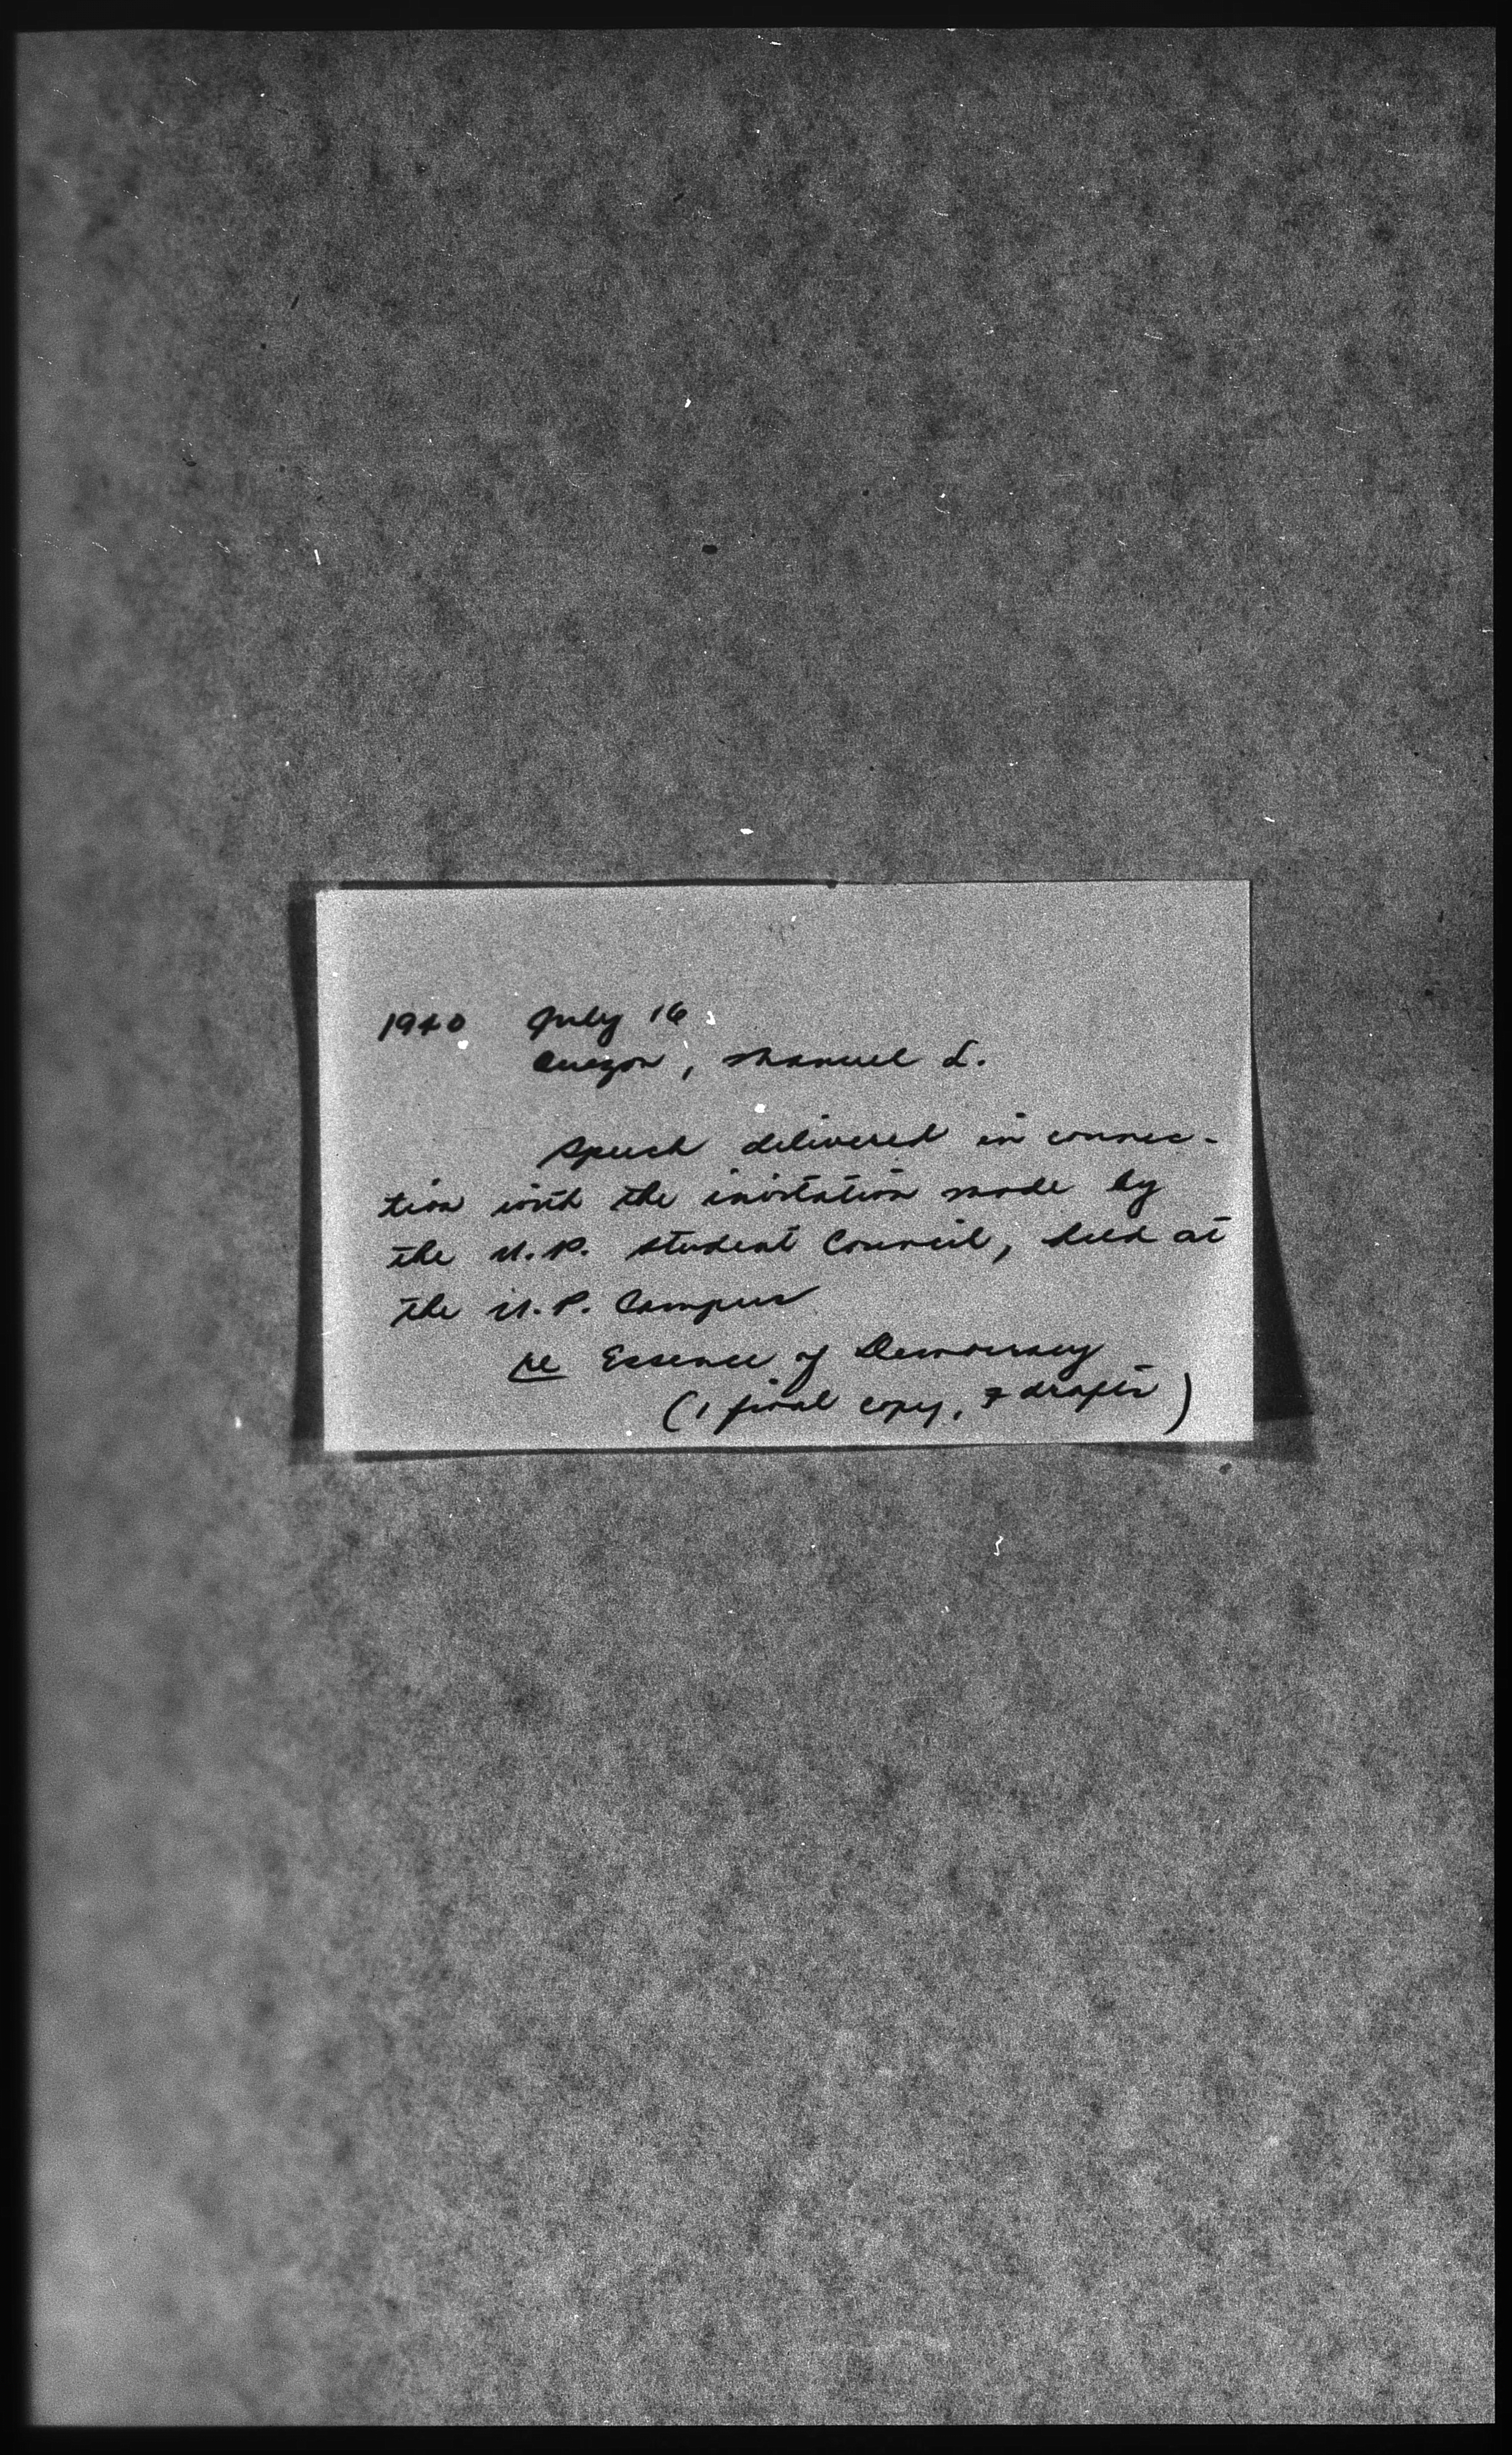 1940 July 16
Quezon, Manuel L.
Speech delivered in connec-
tion with the invitation made by
the U.P. Student Council, held at
the U.P. Campus
re Essence of Democracy
(1 final copy, 7 drafts)